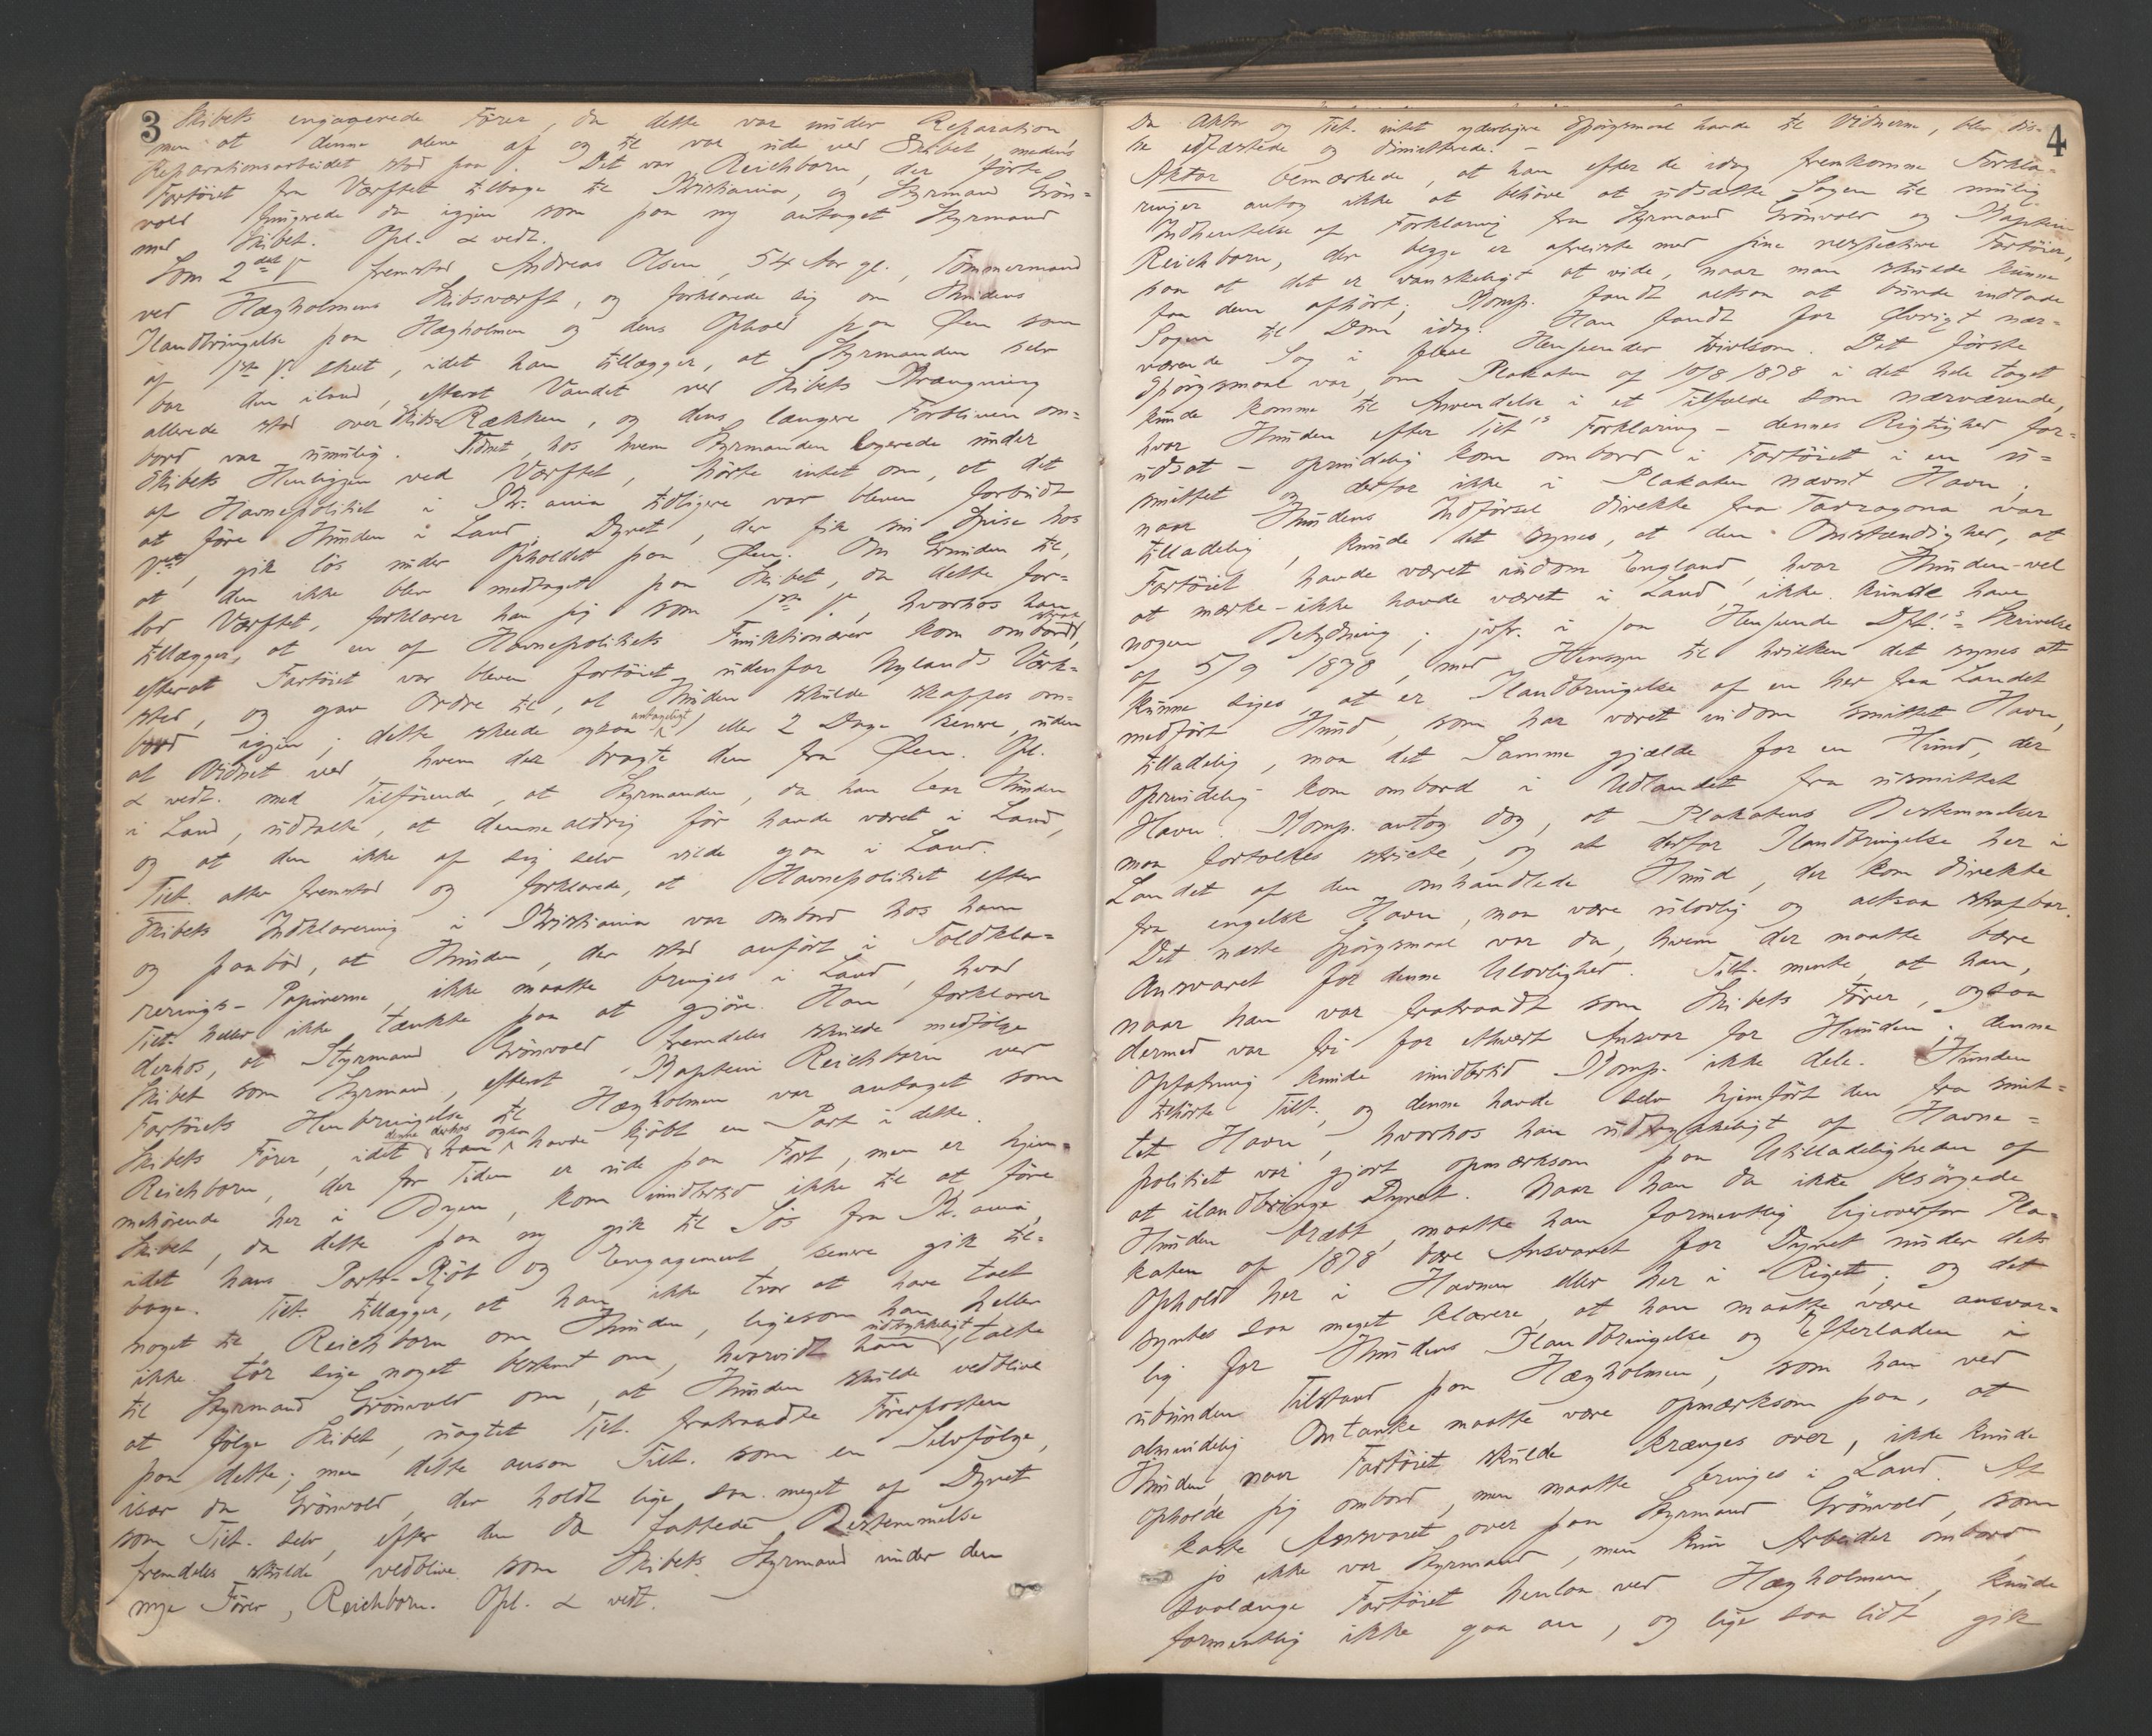 3
Skibets engagerede Fører, da dette var under Reparation,
men at denne alene af og til var ude ved Skibet, medens
Reparationsarbeidet stod paa. Det var Reichborn, der førte
Fartøiet fra Værftet tilbage til Kristiania, og Styrmand Grön-
vold fungerede da igjen som paa ny antaget Styrmand
med Skibet. Opl. & vedt.
Som 2det V. fremstod Andreas Olsen, 54 Aar gl., Tömmermand
ved Hægholmens Skibsværft, og forklarede sig om Hundens
Ilandbringelse paa Hægholmen og dens Ophold paa Øen som
af 1ste V. skeet, idet han tillægger, at Styrmanden selv
bar den iland, efterat Vandet ved Skibets Krængning
allerede stod over Skibs-Rækken, og dens længere Forbliven om-
bord var umulig. Vidnet, hos hvem Styrmanden logerede under
Skibets Henliggen ved Værftet, hörte intet om, at det
af Havnepolitiet i Kr.ania tidligere var bleven forbudt
at føre Hunden i Land. Dyret, der fik sin Spise hos
Vdt, gik lös under Opholdet paa Øen. Om Grunden til,
at den ikke blev medtaget paa Skibet, da dette for-
lod Værftet, forklarer han sig som 1ste V., hvorhos han
tillægger, at en af Havnepolitiets Funktionærer kom ombord,
efterat Fartöiet var bleven fortøiet udenfor Nylands Værk-
sted, og gav Ordre til, at Hunden skulde skaffes om-
bord igjen; dette skede ogsaa antageligt 1 eller 2 Dage senere, uden
at Vidnet ved, hvem der bragte den fra Øen. Opl.
& vedt. med Tilförende, at Styrmanden, da han bar Hunden
i Land, udtalte, at denne aldrig för havde været i Land,
og at den ikke af sig selv vilde gaa i Land.
Tilt. atter fremstod og forklarede, at Havnepolitiet efter
Skibets Indklarering i Kristiania var ombord hos ham
og paabød, at Hunden, der stod anført i Toldkla-
rerings-Papirerne, ikke maatte bringes i Land, hvad
Tilt. heller ikke tænkte paa at gjöre. Han forklarer
derhos, at Styrmand Grönvold fremdeles skulde medfölge
Skibet som Styrmand, efterat Kaptein Reichborn ved
Fartöiets Henbringelse til Hægholmen var antaget som
Skibets Förer, idet denne derhos ogsaa havde kjöbt en Part i dette.
Reichborn, der for Tiden er ude paa Fart, men er hjem-
mehörende her i Byen, kom imidlertid ikke til at före
Skibet, da dette paa ny gik til Sös fra Kr.ania,
idet hans Parts-Kjöb og Engagement senere gik til-
bage. Tilt. tillægger, at han ikke tror at have talt
noget til Reichborn om Hunden, ligesom han heller
ikke tör sige noget bestemt om, hvorvidt han udtrykkeligt talte
til Styrmand Grönvold om, at Hunden skulde vedblive
at fölge Skibet, uagtet Tilt. fratraadte Förerposten
paa dette; men dette ansaa Tilt. som en Selvfölge,
især da Grönvold, der holdt lige saa meget af Dyret
som Tilt. selv, efter den da fattede Bestemmelse
fremdeles skulde vedblive som Skibets Styrmand under den
nye Förer, Reichborn. Opl. & vedt.
4
Da Aktor og Tilt. intet yderligere Spörgsmaal havde til Vidnerne, blev dis-
se edfæstede og dimitterede. –
Aktor bemærkede, at han efter de idag fremkomne Forkla-
ringer antog ikke at behöve at udsætte Sagen til mulig
Indhentelse af Forklaring fra Styrmand Grönvold og Kaptein
Reichborn, der begge er afreiste med sine respektive Fartöier,
saa at det er vanskeligt at vide, naar man skulde kunne
faa dem afhört; Komp. fandt altsaa at burde indlade
Sagen til Dom idag. Han fandt for Øvrigt nær-
værende Sag i flere Henseender tvivlsom. Det förste
Spörgsmaal var, om Plakaten af 10/8 1878 i det hele taget
kunde komme til Anvendelse i et Tilfælde som nærværende,
hvor Hunden efter Tilt's Forklaring – dennes Rigtighed for-
udsat – oprindelig kom ombord i Fartöiet i en u-
smittet og derfor ikke i Plakaten nævnt Havn;
naar Hundens Indförsel direkte fra Tarragona var
tilladelig, kunde det synes, at den Omstændighed, at
Fartöiet havde været indom England, hvor Hunden – vel
at mærke – ikke havde været i Land, ikke kunde have
nogen Betydning; jvfr. i saa Henseende Dpt.'s Skrivelse
af 5/9 1878, med Hensyn til hvilken det synes at
kunne siges, at er Ilandbringelse af en her fra Landet
medfört Hund, som har været indom smittet Havn,
tilladelig, maa det Samme gjælde for en Hund, der
oprindelig kom ombord i Udlandet fra usmittet
Havn. Komp. antog dog, at Plakatens Bestemmelser
maa fortolkes strikte, og at derfor Ilandbringelse her i
Landet af den omhandlede Hund, der kom direkte
fra engelsk Havn, maa være ulovlig og altsaa strafbar.
Det næste Spörgsmaal var da, hvem der maatte bære
Ansvaret for denne Ulovlighed. Tilt. mente, at han,
naar han var fratraadt som Skibets Förer, ogsaa
dermed var fri for ethvert Ansvar for Hunden; denne
Opfatning kunde imidlertid Komp. ikke dele. Hunden
tilhörte Tilt., og denne havde selv hjemfört den fra smit-
tet Havn, hvorhos han udtrykkeligt af Havne-
politiet var gjort opmærksom paa Utilladeligheden af
at ilandbringe Dyret. Naar han da ikke besörgede
Hunden dræbt, maatte han formentlig ligeoverfor Pla-
katen af 1878 bære Ansvaret for Dyret under dets
Ophold her i Havnen eller her i Riget; og det
syntes saa meget klarere, at han maatte være ansvar-
lig for Hundens Ilandbringelse og Efterladen i
ubunden Tilstand paa Hægholmen, som han ved
almindelig Omtanke maatte være opmærksom paa, at
Hunden, naar Fartöiet skulde krænges over, ikke kunde
opholde sig ombord, men maatte bringes i Land. At
kaste Ansvaret over paa Styrmand Grönvold, som
jo ikke var Styrmand, men kun Arbeider ombord,
saalænge Fartöiet henlaa ved Hægholmen, kunde
formentlig ikke gaa an, og lige saa lidt gik